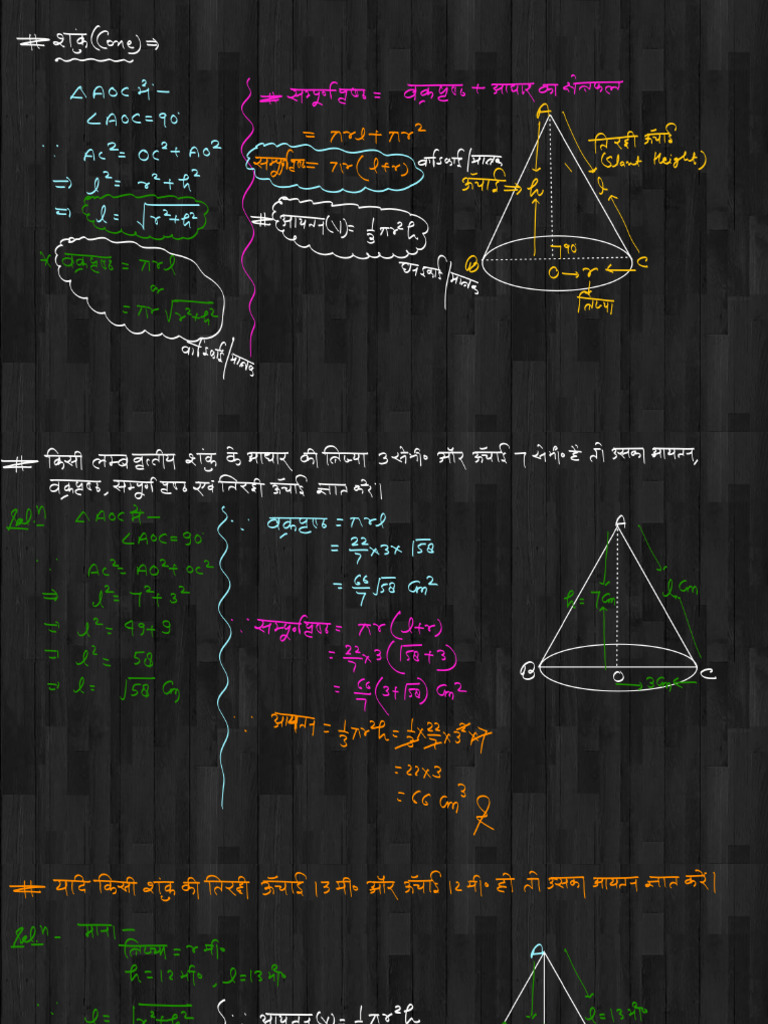 # शंकु (Cone) ⇒
△AOC में -
∠AOC = 90°
∵ AC² = OC² + AO²
⇒ l² = r² + h²
⇒ l = √(r²+h²)
* वक्रपृष्ठ = πrl
or
= πr√(r²+h²)
वर्ग इकाई/मात्रक
# सम्पूर्ण पृष्ठ = वक्रपृष्ठ + आधार का क्षेत्रफल
= πrl + πr²
सम्पूर्ण पृष्ठ = πr(l+r) वर्ग इकाई/मात्रक
# आयतन (V) = 1/3 πr²h
घन इकाई/मात्रक
A
तिरछी ऊँचाई
(Slant Height)
ऊँचाई ⇒ h
l
90
B
O → r ← C
त्रिज्या
# किसी लम्ब वृत्तीय शंकु के आधार की त्रिज्या 3 सेमी० और ऊँचाई 7 सेमी० है तो उसका आयतन,
वक्रपृष्ठ, सम्पूर्ण पृष्ठ एवं तिरछी ऊँचाई ज्ञात करें।
Solⁿ
△AOC में -
∠AOC = 90°
∵ AC² = AO² + OC²
⇒ l² = 7² + 3²
⇒ l² = 49 + 9
⇒ l² = 58
⇒ l = √58 Cm
∵ वक्रपृष्ठ = πrl
= 22/7 × 3 × √58
= 66/7 √58 Cm²
∵ सम्पूर्ण पृष्ठ = πr(l+r)
= 22/7 × 3(√58 + 3)
= 66/7 (3+√58) Cm²
∵ आयतन = 1/3 πr²h = 1/3 × 22/7 × 3² × 7
= 22 × 3
= 66 Cm³
A
h = 7Cm
l Cm
B
O
C
3Cm
# यदि किसी शंकु की तिरछी ऊँचाई 13 मी० और ऊँचाई 12 मी० हो तो उसका आयतन ज्ञात करें।
Solⁿ - माना -
त्रिज्या = r मी०
h = 12 मी०, l = 13 मी०
∵ l = √(r²+h²)
∵ आयतन (V) = 1/3 πr²h
A
l = 13 मी०